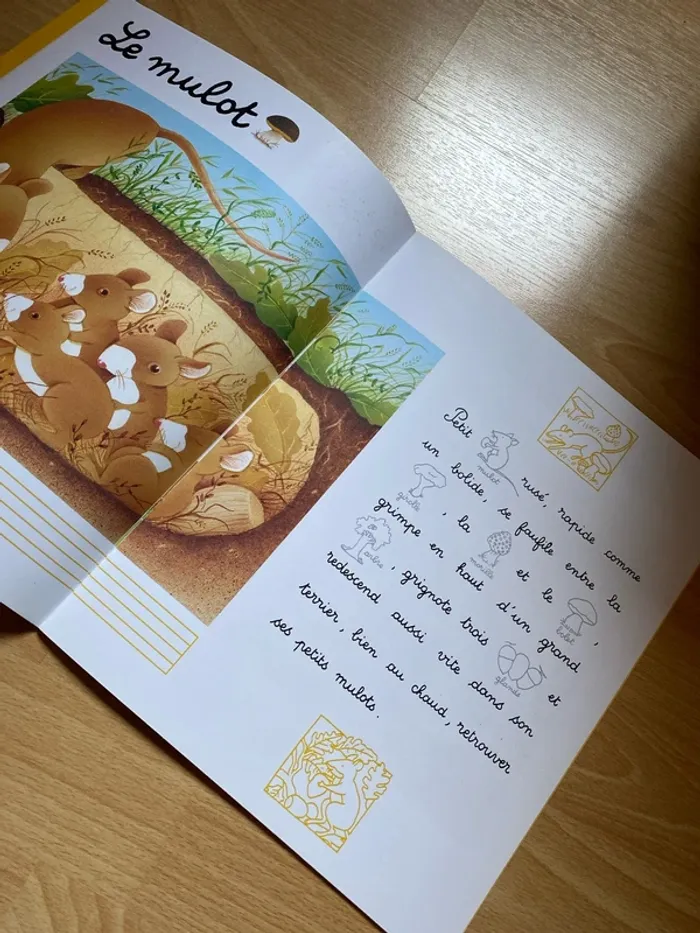 Le mulot
Petit mulot rusé, rapide comme
un bolide, se faufile entre la
girolle, la morille et le bolet,
grimpe en haut d'un grand
arbre, grignote trois glands et
redescend aussi vite dans son
terrier, bien au chaud, retrouver
ses petits mulots.